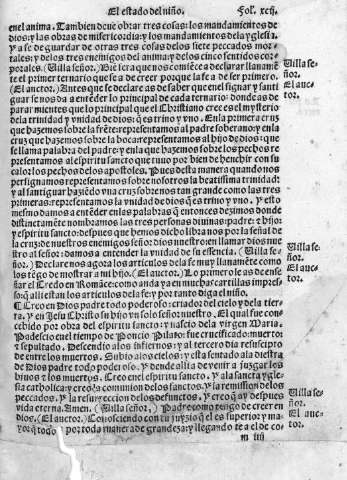 El estado del niño. Fol. xcij.
en el anima. Tambien deue obrar tres cosas: los mandamientos de
dios: y las obras de misericordia: y los mandamientos dela yglesia.
y a se de guardar de otras tres cosas delos siete peccados mor-
tales: y delos tres enemigos del anima: y delos cinco sentidos cor-
porales. (Uilla señor.) Biẽ sera que nos comẽce a declarar llanamẽ
te el primer ternario que se a de creer porque la fe a de ser primero.
(El auctor.) Antes que se declare as de saber que enel signar y santi
guar se nos da a entẽder lo principal de cada ternario: donde as de
parar mientes que lo principal que el Christiano cree es el mysterio
dela trinidad y vnidad de dios: q̃ es trino y vno. En la primera cruz
que hazemos sobre la frẽte: representamos al padre soberano: y en la
cruz que hazemos sobre la boca: representamos al hijo de dios: que
se llama palabra del padre: y en la que hazemos sobre los pechos re
presentamos al espiritu sancto que tuuo por bien de henchir con su
calor los pechos delos apostoles. Pues desta manera quando nos
persignamos representamos sobre nosotros la beatissima trinidad:
y al santiguar haziẽdo vna cruz sobre nos tan grande como las tres
primeras: representamos la vnidad de dios q̃ es trino y vno. Y esto
mesmo damos a entẽder en las palabras q̃ entonces dezimos donde
distinctamẽte nombramos las tres personas diuinas: padre: e hijo:
y espiritu sancto: despues que hemos dicho libra nos por la señal de
la cruz: de nuestros enemigos señor dios nuestro: en llamar dios nue
stro al señor: damos a entender la vnidad de su essencia. (Uilla se-
ñor.) Declare nos agora los articulos dela fe muy llanamẽte como
los tẽgo de mostrar a mi hijo. (El auctor.) Lo primero le as de ense
ñar el Credo en Romãce: como anda ya en muchas cartillas impres-
so: q̃ alli estan los articulos dela fe: y por tanto diga el niño.
Creo en Dios padre todo poderoso: criador del cielo y dela tier
ra. Y en Jesu Christo su hijo vn solo señor nuestro. El qual fue con
cebido por obra del espiritu sancto: y nascio dela virgen Maria.
Padescio enel tiempo de Poncio Pilato: fue crucificado: muerto
y sepultado. Descendio alos infiernos: y al tercero dia resuscito
de entre los muertos. Subio alos cielos: y esta sentado ala diestra
de Dios padre todo poderoso. Y dende alli a de venir a juzgar los
biuos y los muertos. Creo enel espiritu sancto. Y ala sancta ygle-
sia catholica: y creo la comunion delos sanctos. Y la remission delos
peccados. Y la resurreccion delos defunctos. Y creo q̃ ay despues
vida eterna. Amen. (Uilla señor.) Padre como tengo de creer en
dios. (El auctor.) Conosciendo con tu juyzio q̃ el es superior y ma-
yor q̃ todo por toda manera de grandeza: y llegando te a el de co
m iiij
Uilla se-
ñor.
El auc-
tor.
Uilla se-
ñor.
El auc-
tor.
Uilla se-
ñor.
El auc-
tor.